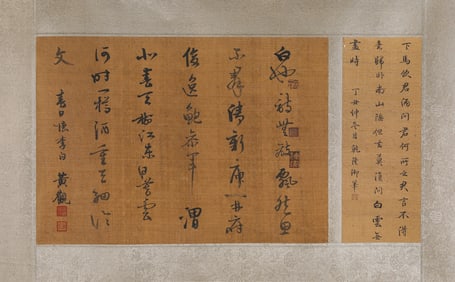 下馬飲君酒問君何所之君言不得
意歸卧南山陲但去莫復問白雲無
盡時 丁丑仲冬月乾隆御筆
白也詩無敵飄然思
不群清新庾開府
俊逸鮑參軍渭
北春天樹江東日暮雲
何時一樽酒重與細論
文 春日憶李白 黃觀